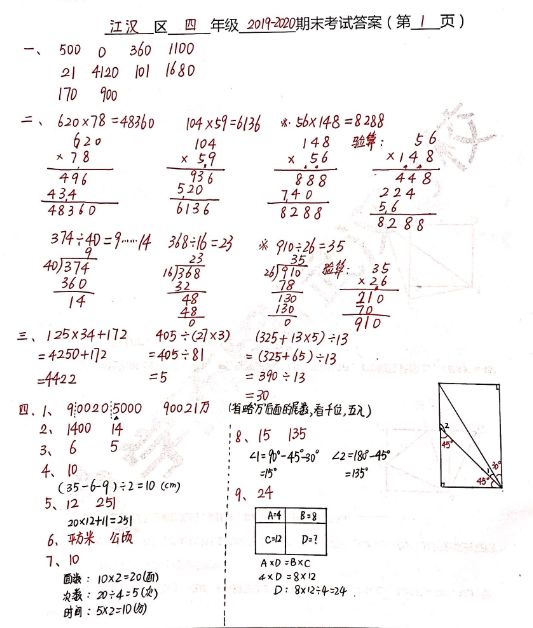 江汉 区 四 年级 2019-2020期末考试答案(第 1 页)
一、 500 0 360 1100
21 4120 101 1680
170 900
二、 620×78=48360 104×59=6136 ※ 56×148=8288 验算:
620
×78
496
434
48360
104
×59
936
520
6136
148
×56
888
740
8288
56
×148
448
224
56
8288
374÷40=9……14 368÷16=23 ※ 910÷26=35 验算:
9
40)374
360
14
23
16)368
32
48
48
0
35
26)910
78
130
130
0
35
×26
210
70
910
三、 125×34+172 405÷(27×3) (325+13×5)÷13
=4250+172 =405÷81 =(325+65)÷13
=4422 =5 =390÷13
=30
四、1、 900205000 90021万 (省略万后面的尾数,看千位,五入)
2、 1400 14
3、 6 5
4、 10
(35-6-9)÷2=10 (cm)
5、 12 251
20×12+11=251
6、 平方米 公顷
7、 10
面数: 10×2=20(面)
次数: 20÷4=5(次)
时间: 5×2=10(分)
8、 15 135
∠1=90°-45°-30° ∠2=180°-45°
=15° =135°
9、 24
A=4 B=8
C=12 D=?
A×D=B×C
4×D=8×12
D: 8×12÷4=24
2
45°
1
30°
45°